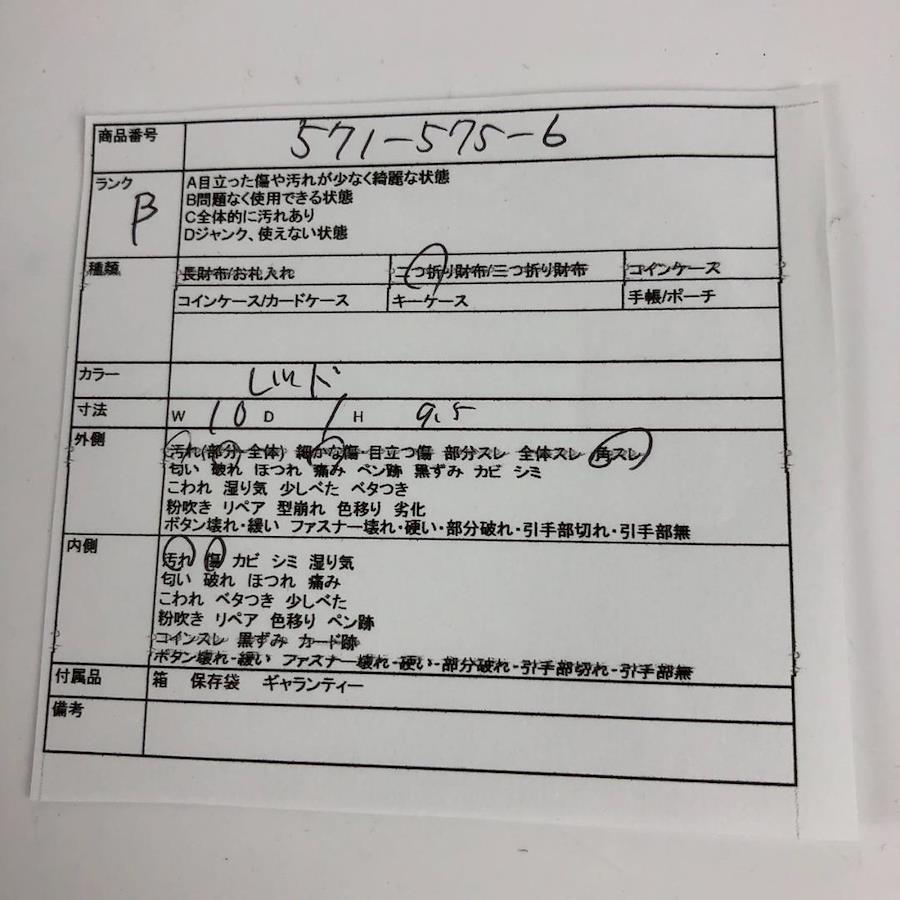 商品番号 571-575-6
ランク B
A目立った傷や汚れが少なく綺麗な状態
B問題なく使用できる状態
C全体的に汚れあり
Dジャンク、使えない状態
種類 長財布/お札入れ 二つ折り財布/三つ折り財布 コインケース
コインケース/カードケース キーケース 手帳/ポーチ
カラー レッド
寸法 W 10 D 1 H 9.5
外側 汚れ(部分・全体) 細かな傷・目立つ傷 部分スレ 全体スレ 角スレ
匂い 破れ ほつれ 痛み ペン跡 黒ずみ カビ シミ
こわれ 湿り気 少しべた ベタつき
粉吹き リペア 型崩れ 色移り 劣化
ボタン壊れ・緩い ファスナー壊れ・硬い・部分破れ・引手部切れ・引手部無
内側 汚れ 傷 カビ シミ 湿り気
匂い 破れ ほつれ 痛み
こわれ ベタつき 少しべた
粉吹き リペア 色移り ペン跡
コインスレ 黒ずみ カード跡
ボタン壊れ・緩い ファスナー壊れ・硬い・部分破れ・引手部切れ・引手部無
付属品 箱 保存袋 ギャランティー
備考